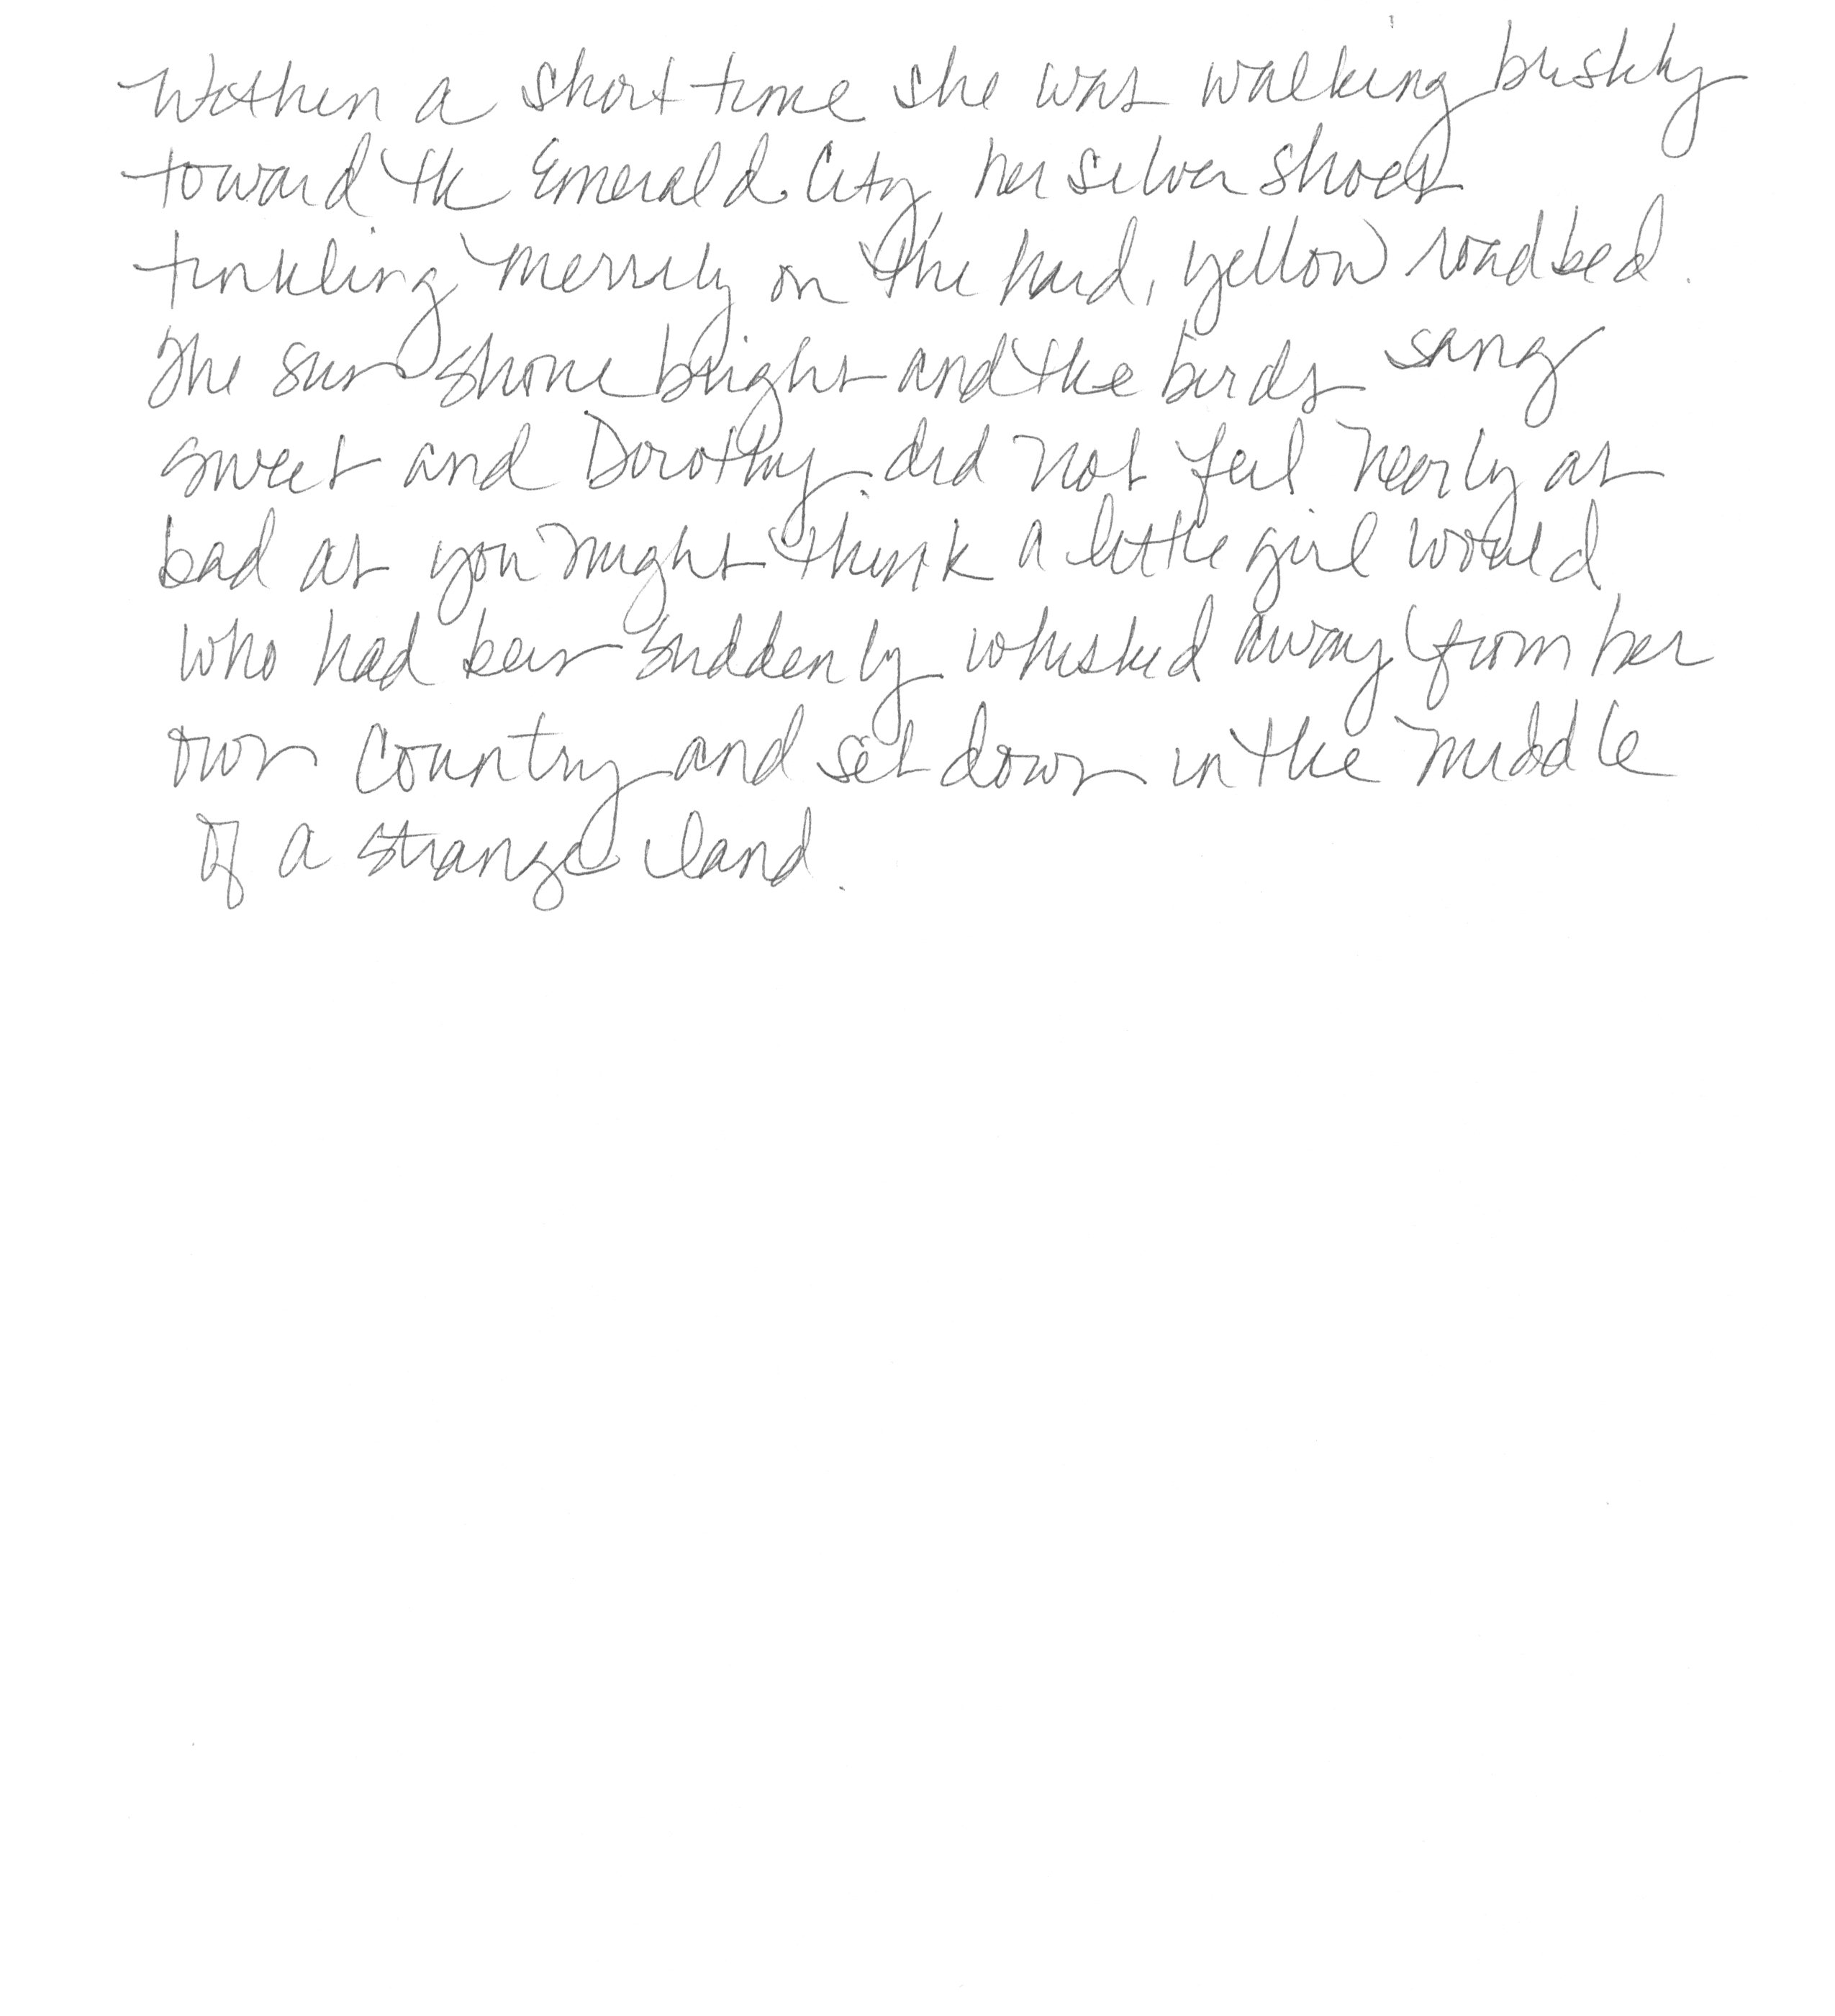 Within a short time she was walking briskly
toward the Emerald City, her silver shoes
tinkling merrily on the hard, yellow roadbed.
The sun shone bright and the birds sang
sweet and Dorothy did not feel nearly as
bad as you might think a little girl would
who had been suddenly whisked away from her
own country and set down in the middle
of a strange land.